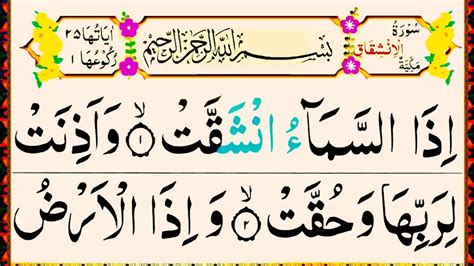 سُورَةُ الْاِنْشِقَاقِ مَكِّيَّةٌ
بِسْمِ اللّٰهِ الرَّحْمٰنِ الرَّحِيْمِ
اٰيَاتُهَا ٢٥ رُكُوْعُهَا ١
اِذَا السَّمَآءُ انْشَقَّتْ ۙ۝١ وَاَذِنَتْ
لِرَبِّهَا وَحُقَّتْ ۙ۝٢ وَاِذَا الْاَرْضُ